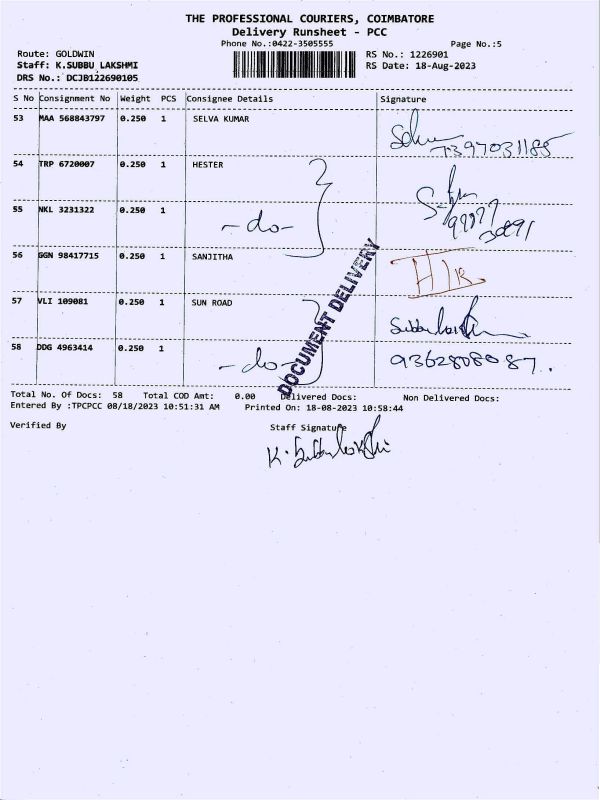 THE PROFESSIONAL COURIERS, COIMBATORE
Delivery Runsheet - PCC
Phone No.:0422-3505555
Page No.:5
Route: GOLDWIN
RS No.: 1226901
Staff: K.SUBBU LAKSHMI
RS Date: 18-Aug-2023
DRS No.: DCJB122690105
S No Consignment No Weight PCS Consignee Details Signature
53 MAA 568843797 0.250 1 SELVA KUMAR
7397031185
54 TRP 6720007 0.250 1 HESTER
55 NKL 3231322 0.250 1
-do-
56 GGN 98417715 0.250 1 SANJITHA
57 VLI 109081 0.250 1 SUN ROAD
58 DDG 4963414 0.250 1
-do-
9362808087.
DOCUMENT DELIVERY
Total No. Of Docs: 58 Total COD Amt: 0.00 Delivered Docs: Non Delivered Docs:
Entered By :TPCPCC 08/18/2023 10:51:31 AM Printed On: 18-08-2023 10:58:44
Verified By Staff Signature
K. Subbulakshmi